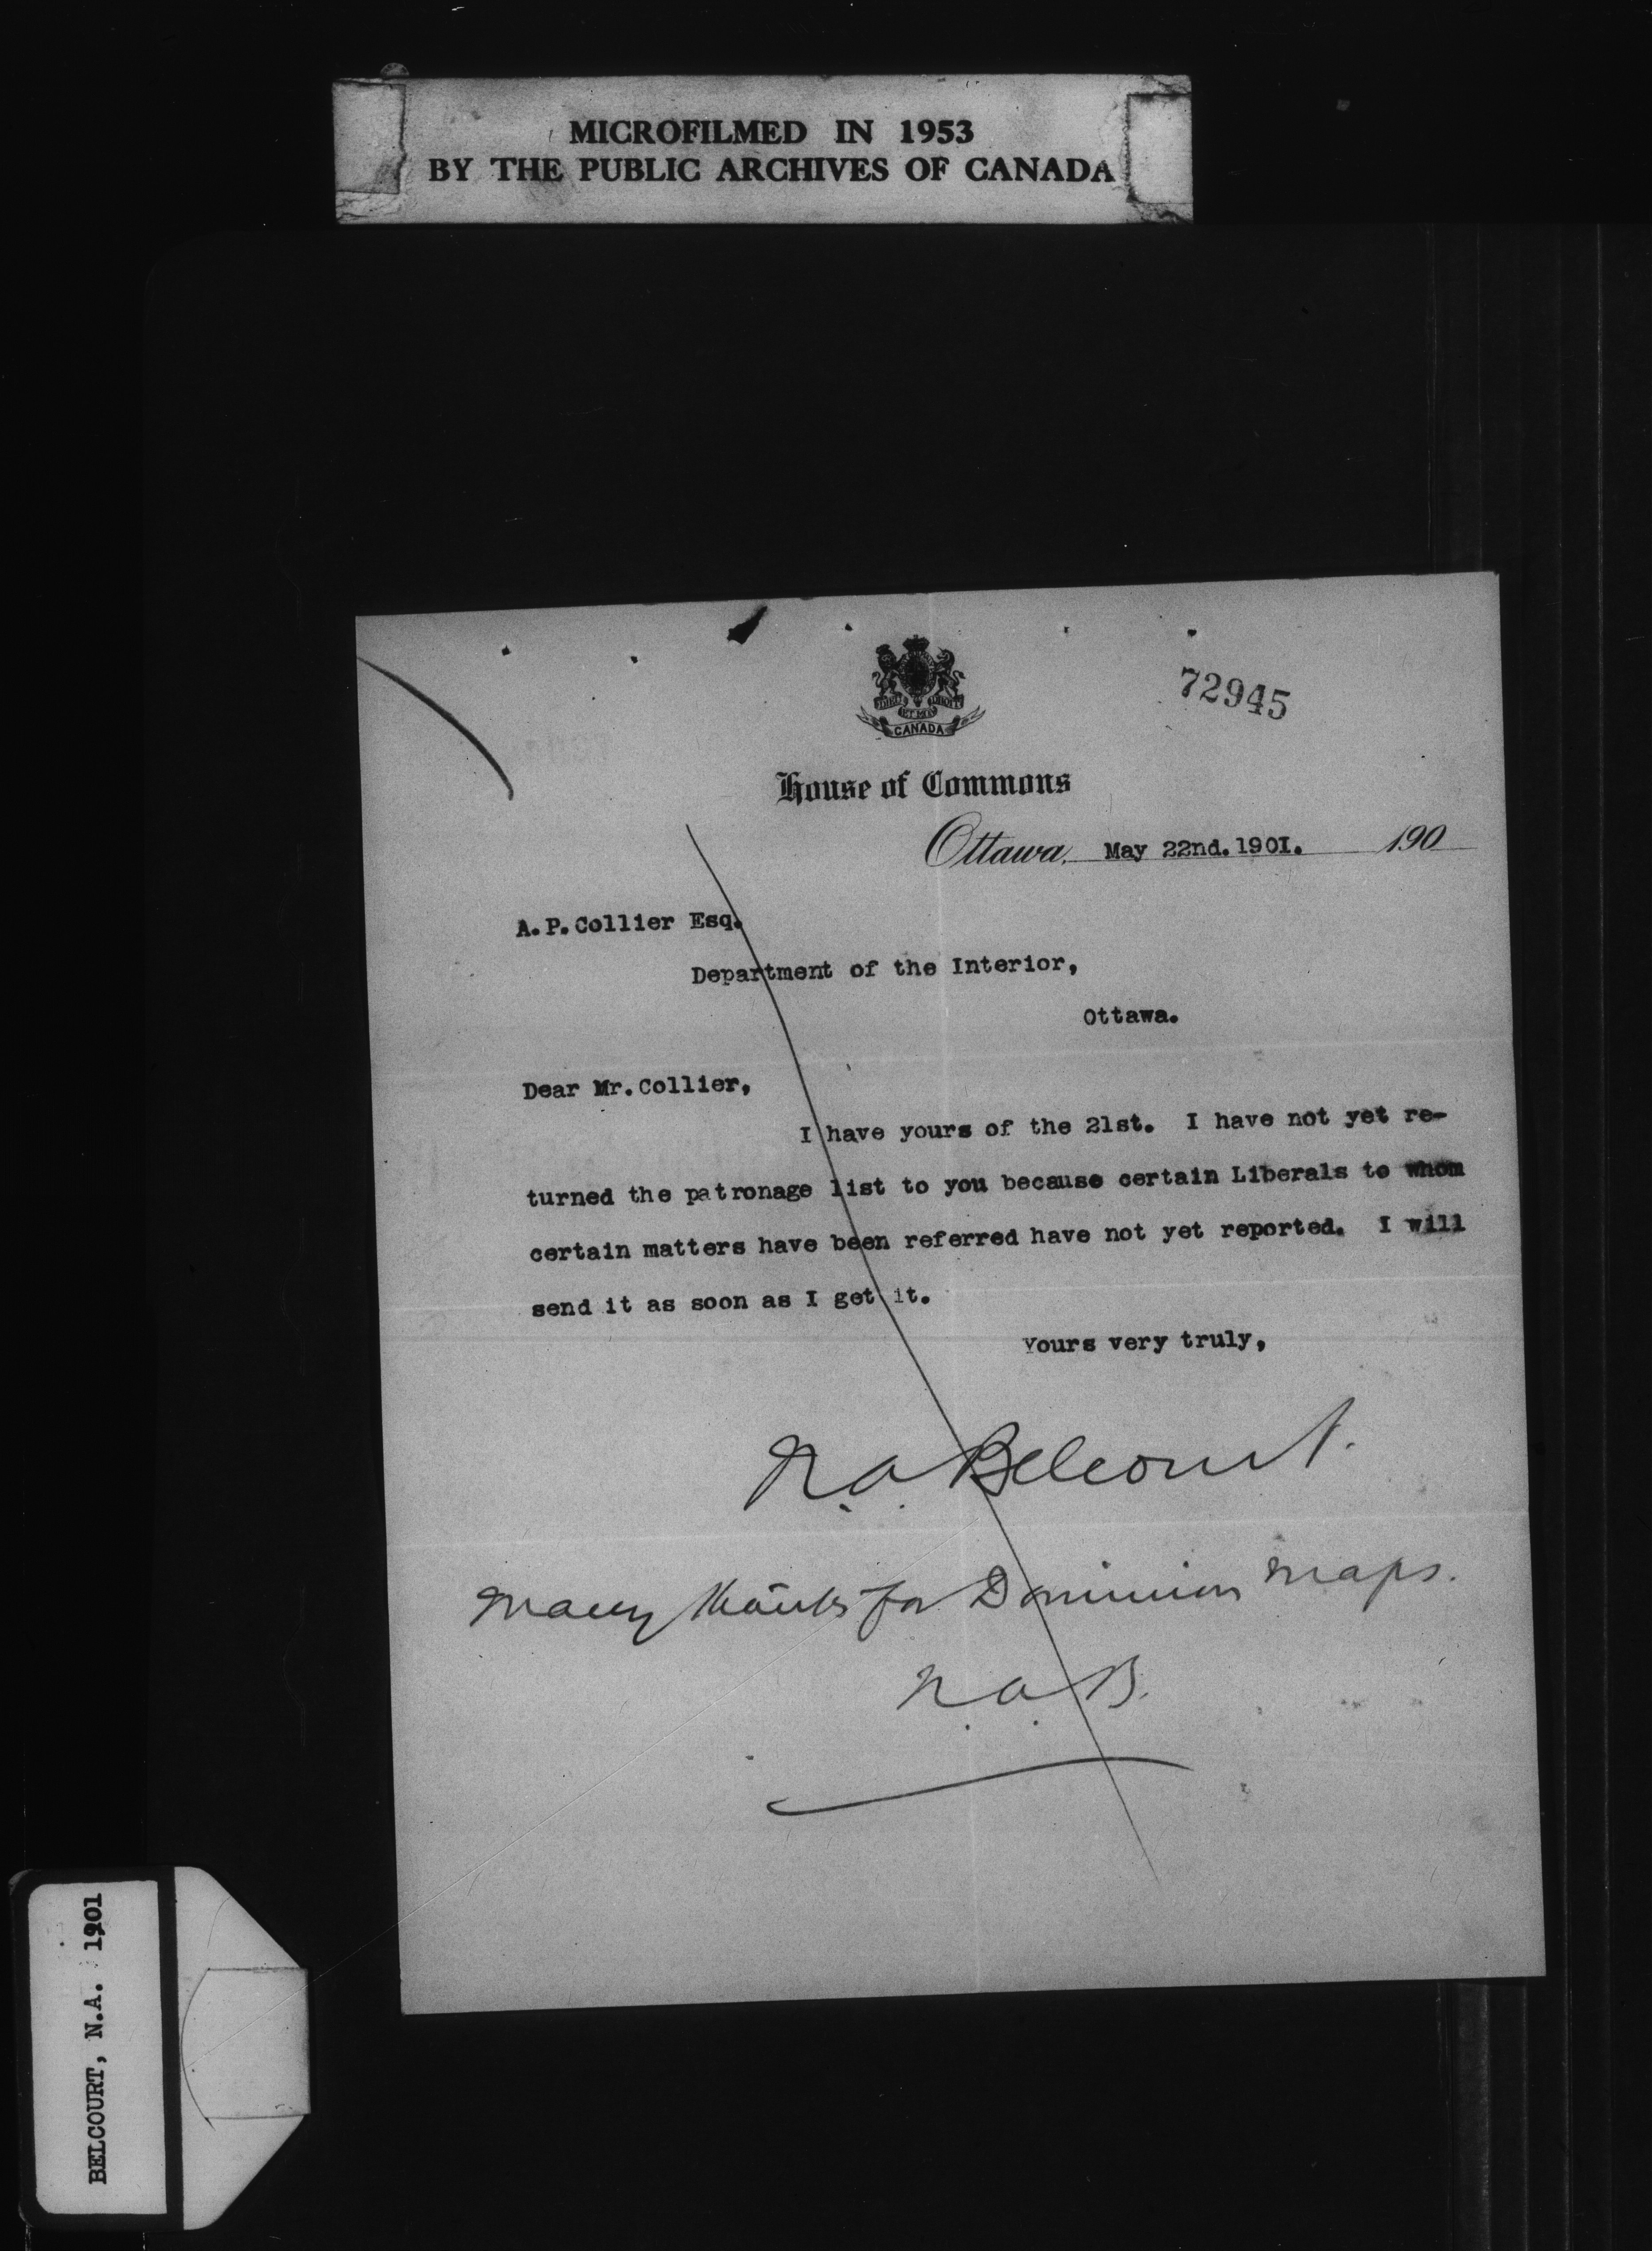 MICROFILMED IN 1953
BY THE PUBLIC ARCHIVES OF CANADA
DIEU DROIT
ET MON
CANADA
72945
House of Commons
Ottawa, May 22nd.1901. 190
A.P.Collier Esq.
Department of the Interior,
Ottawa.
Dear Mr.Collier,
I have yours of the 21st. I have not yet re-
turned the patronage list to you because certain Liberals to whom
certain matters have been referred have not yet reported. I will
send it as soon as I get it.
Yours very truly,
N.A. Belcourt.
Many thanks for Dominion maps.
N.A.B.
BELCOURT, N.A. 1901